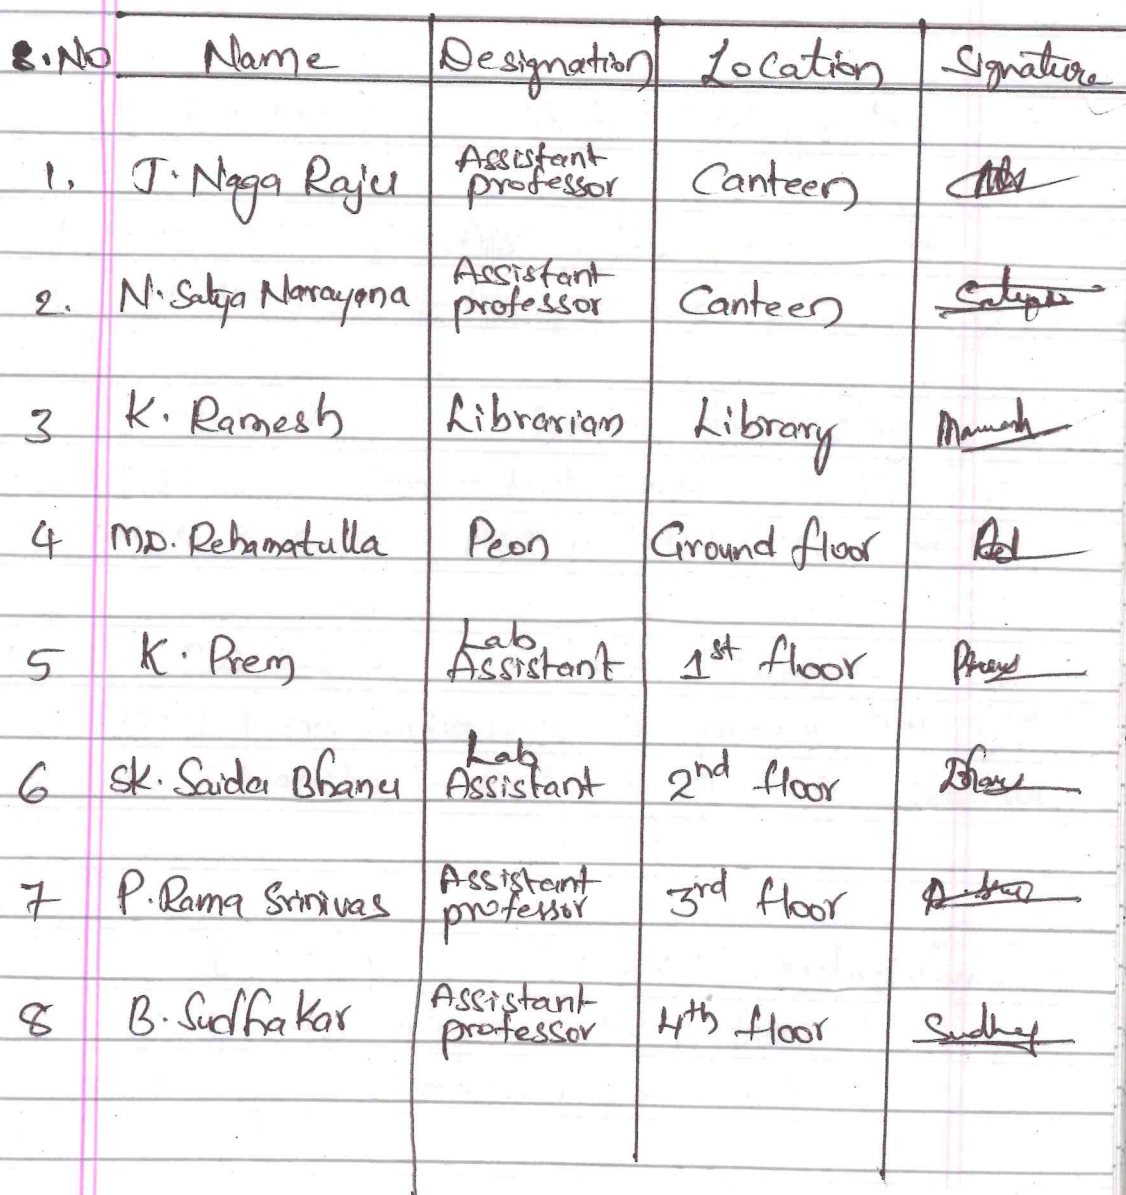 S.No Name Designation Location Signature
1. J. Naga Raju Assistant professor Canteen
2. N. Satya Narayana Assistant professor Canteen Satya
3 K. Ramesh Librarian Library
4 MD. Rehamatulla Peon Ground floor
5 K. Prem Lab Assistant 1st floor
6 SK. Saida Bhanu Lab Assistant 2nd floor
7 P. Rama Srinivas Assistant professor 3rd floor
8 B. Sudhakar Assistant professor 4th floor